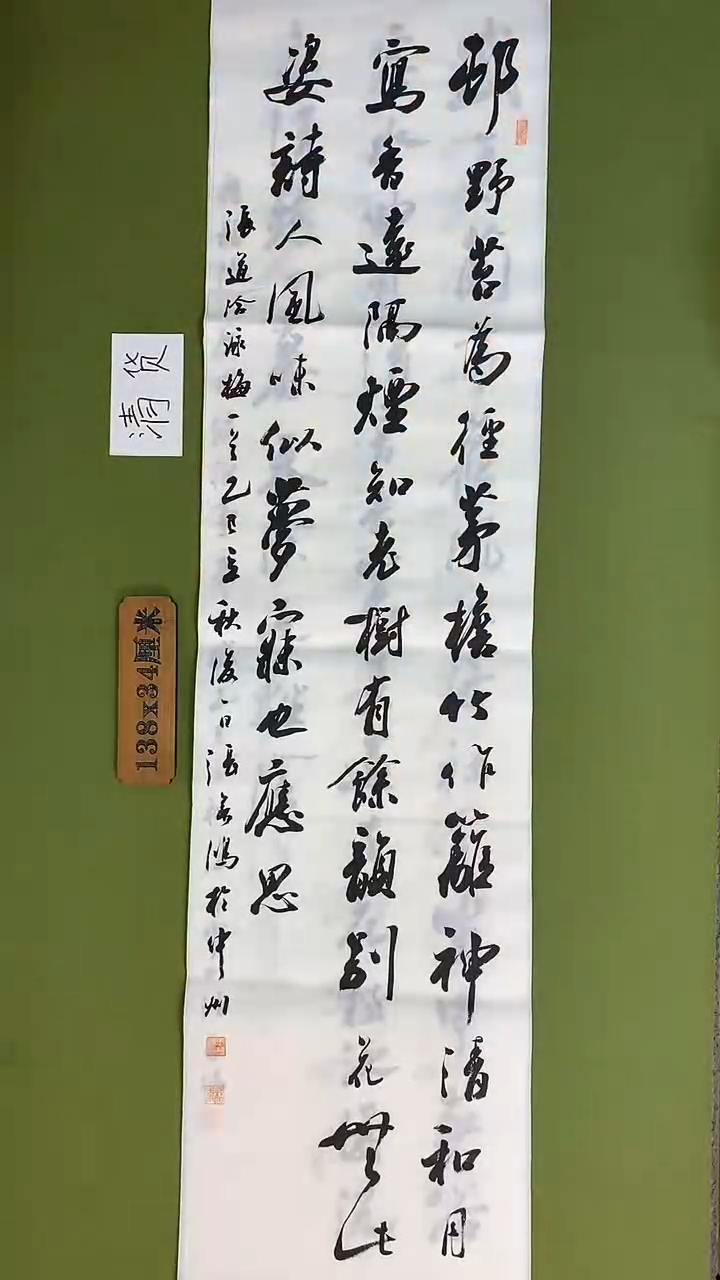 邨野苔為徑茅檐竹作籬神清和月
寫香遠隔煙知老樹有餘韻別花無此
姿詩人風味似夢寐也應思
張道洽詠梅一首乙巳立秋後一日張鴻於中州
清
138x34厘米